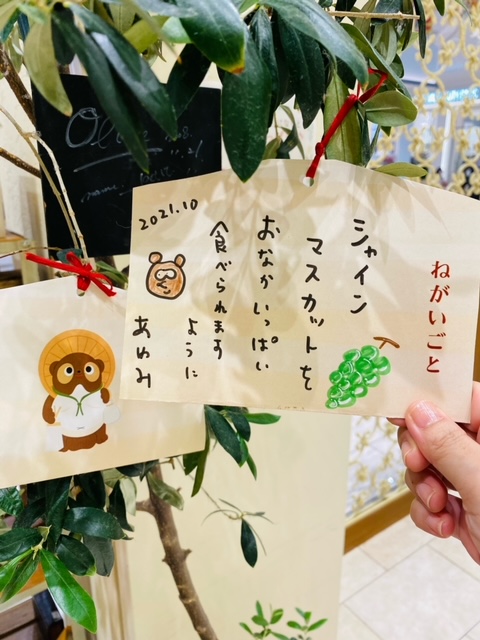 ねがいごと
シャイン
マスカットを
おなかいっぱい
食べられます
ように
あゆみ
2021.10
Olive